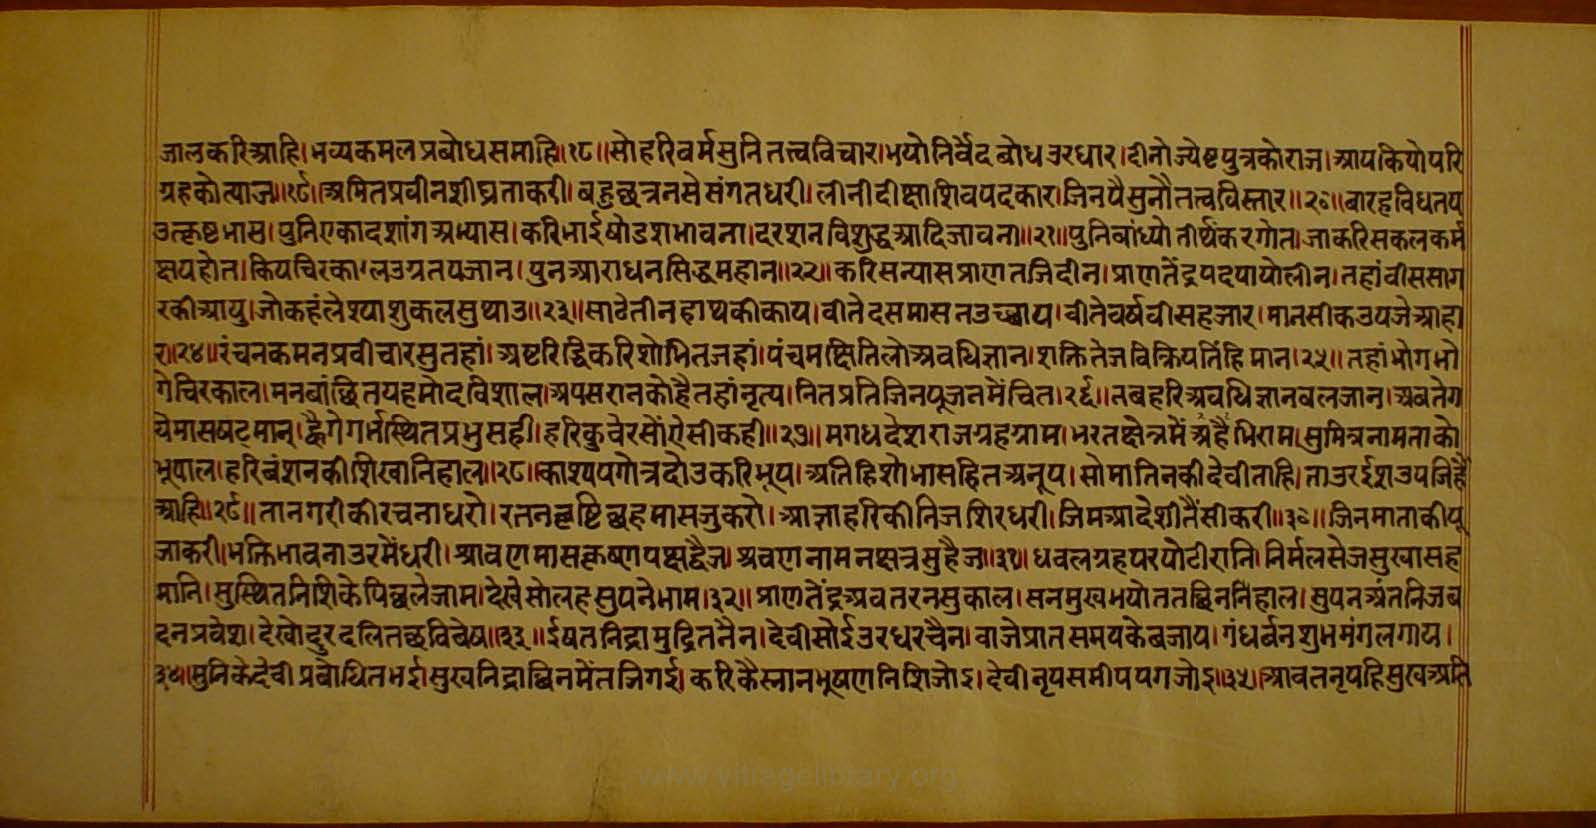 जालकरिआहि।भव्यकमलप्रबोधसमाहि॥१८॥सोहरिवर्मसुनितत्त्वविचार।भयोनिर्वेदबोधउरधार।दीनोज्येष्टपुत्रकोराज।आपकियोपरि
ग्रहकोत्याज॥१९॥अमितप्रवीनशीघ्रताकरी।बहुछत्रनसेसंगतधरी।लीनीदीक्षाशिवपदकार।जिनपैसुनौतत्त्वविस्तार॥२०॥बारहविधतप
उत्कृष्टभास।पुनिएकादशांगअभ्यास।करिभाईषोडशभावना।दरशनविशुद्धआदिजावना॥२१॥पुनिबांध्योतीर्थंकरगोत।जाकरिसकलकर्म
क्षयहोत।कियचिरकालउग्रतपजान।पुनआराधनसिद्धमहान॥२२॥करिसन्यासप्राणतजिदीन।प्राणतेंद्रपदपायोलीन।तहांवीससाग
रकीआयु।जोकहंलेश्याशुकलसुथाउ॥२३॥साढेतीनहाथकीकाय।वीतेदसमासनउच्छ्वाय।वीतेवर्षवीसहजार।मानसीकउपजेआहा
र॥२४॥रंचनकमनप्रवीचारसुतहां।अष्टरिद्धिकरिशोभितजहां।पंचमक्षितिलोअवधिज्ञान।शक्तितेजविक्रियतिंहिमान।२५॥तहांभोगभो
गेचिरकाल।मनबांछितयहमोदविशाल।अपसरानकोहैतहांनृत्य।नितप्रतिजिनपूजनमेंचित।२६॥तबहरिअवधिज्ञानबलजान।अबतेग
येमासषटमान।ह्वैगेगर्भस्थितप्रभुसही।हरिकुवेरसोंऐसीकही॥२७॥मगधदेशराजग्रहग्राम।भरतक्षेत्रमेंअहैभिराम।सुमित्रनामताको
भूपाल।हरिबंशनकीशिखानिहाल॥२८॥काश्यपगोत्रदोउकरिभूप।अतिहिशोभासहितअनूप।सोमातिनकीदेवीताहि।ताउरईशउपजिहै
आहि॥२९॥तानगरीकीरचनाधरो।रतनवृष्टिछहमासजुकरो।आज्ञाहरिकीनिजशिरधरी।जिमआदेशीतैंसीकरी॥३०॥जिनमाताकीपू
जाकरी।भक्तिभावनाउरमेंधरी।श्रावणमासकृष्णपक्षद्वैज।श्रवणनामनक्षत्रसुहैज॥३१॥धवलग्रहपरपोटीरानि।निर्मलसेजसुखासह
मानि।सुस्थितनिशिकेपिछलेजाम।देखेसोलहसुपनेभाम।३२॥प्राणतेंद्रअवतरनसुकाल।सनमुखभयोततछिननिंहाल।सुपनअंतनिजब
दनप्रवेश।देखोदुरदलितछविवेष॥३३॥ईषतनिद्रामुद्रितनैन।देवीसोईउरधरचैन।वाजेप्रातसमयकेबजाय।गंधर्बनशुभमंगलगाय।
३४॥सुनिकेदेवीप्रबोधितभई।सुखनिद्राछिनमेंतजिगई।करिकैस्नानभूषणनिशिजोइ।देवीनृपसमीपपगजोइ॥३५॥आवतनृपहिसुखअति